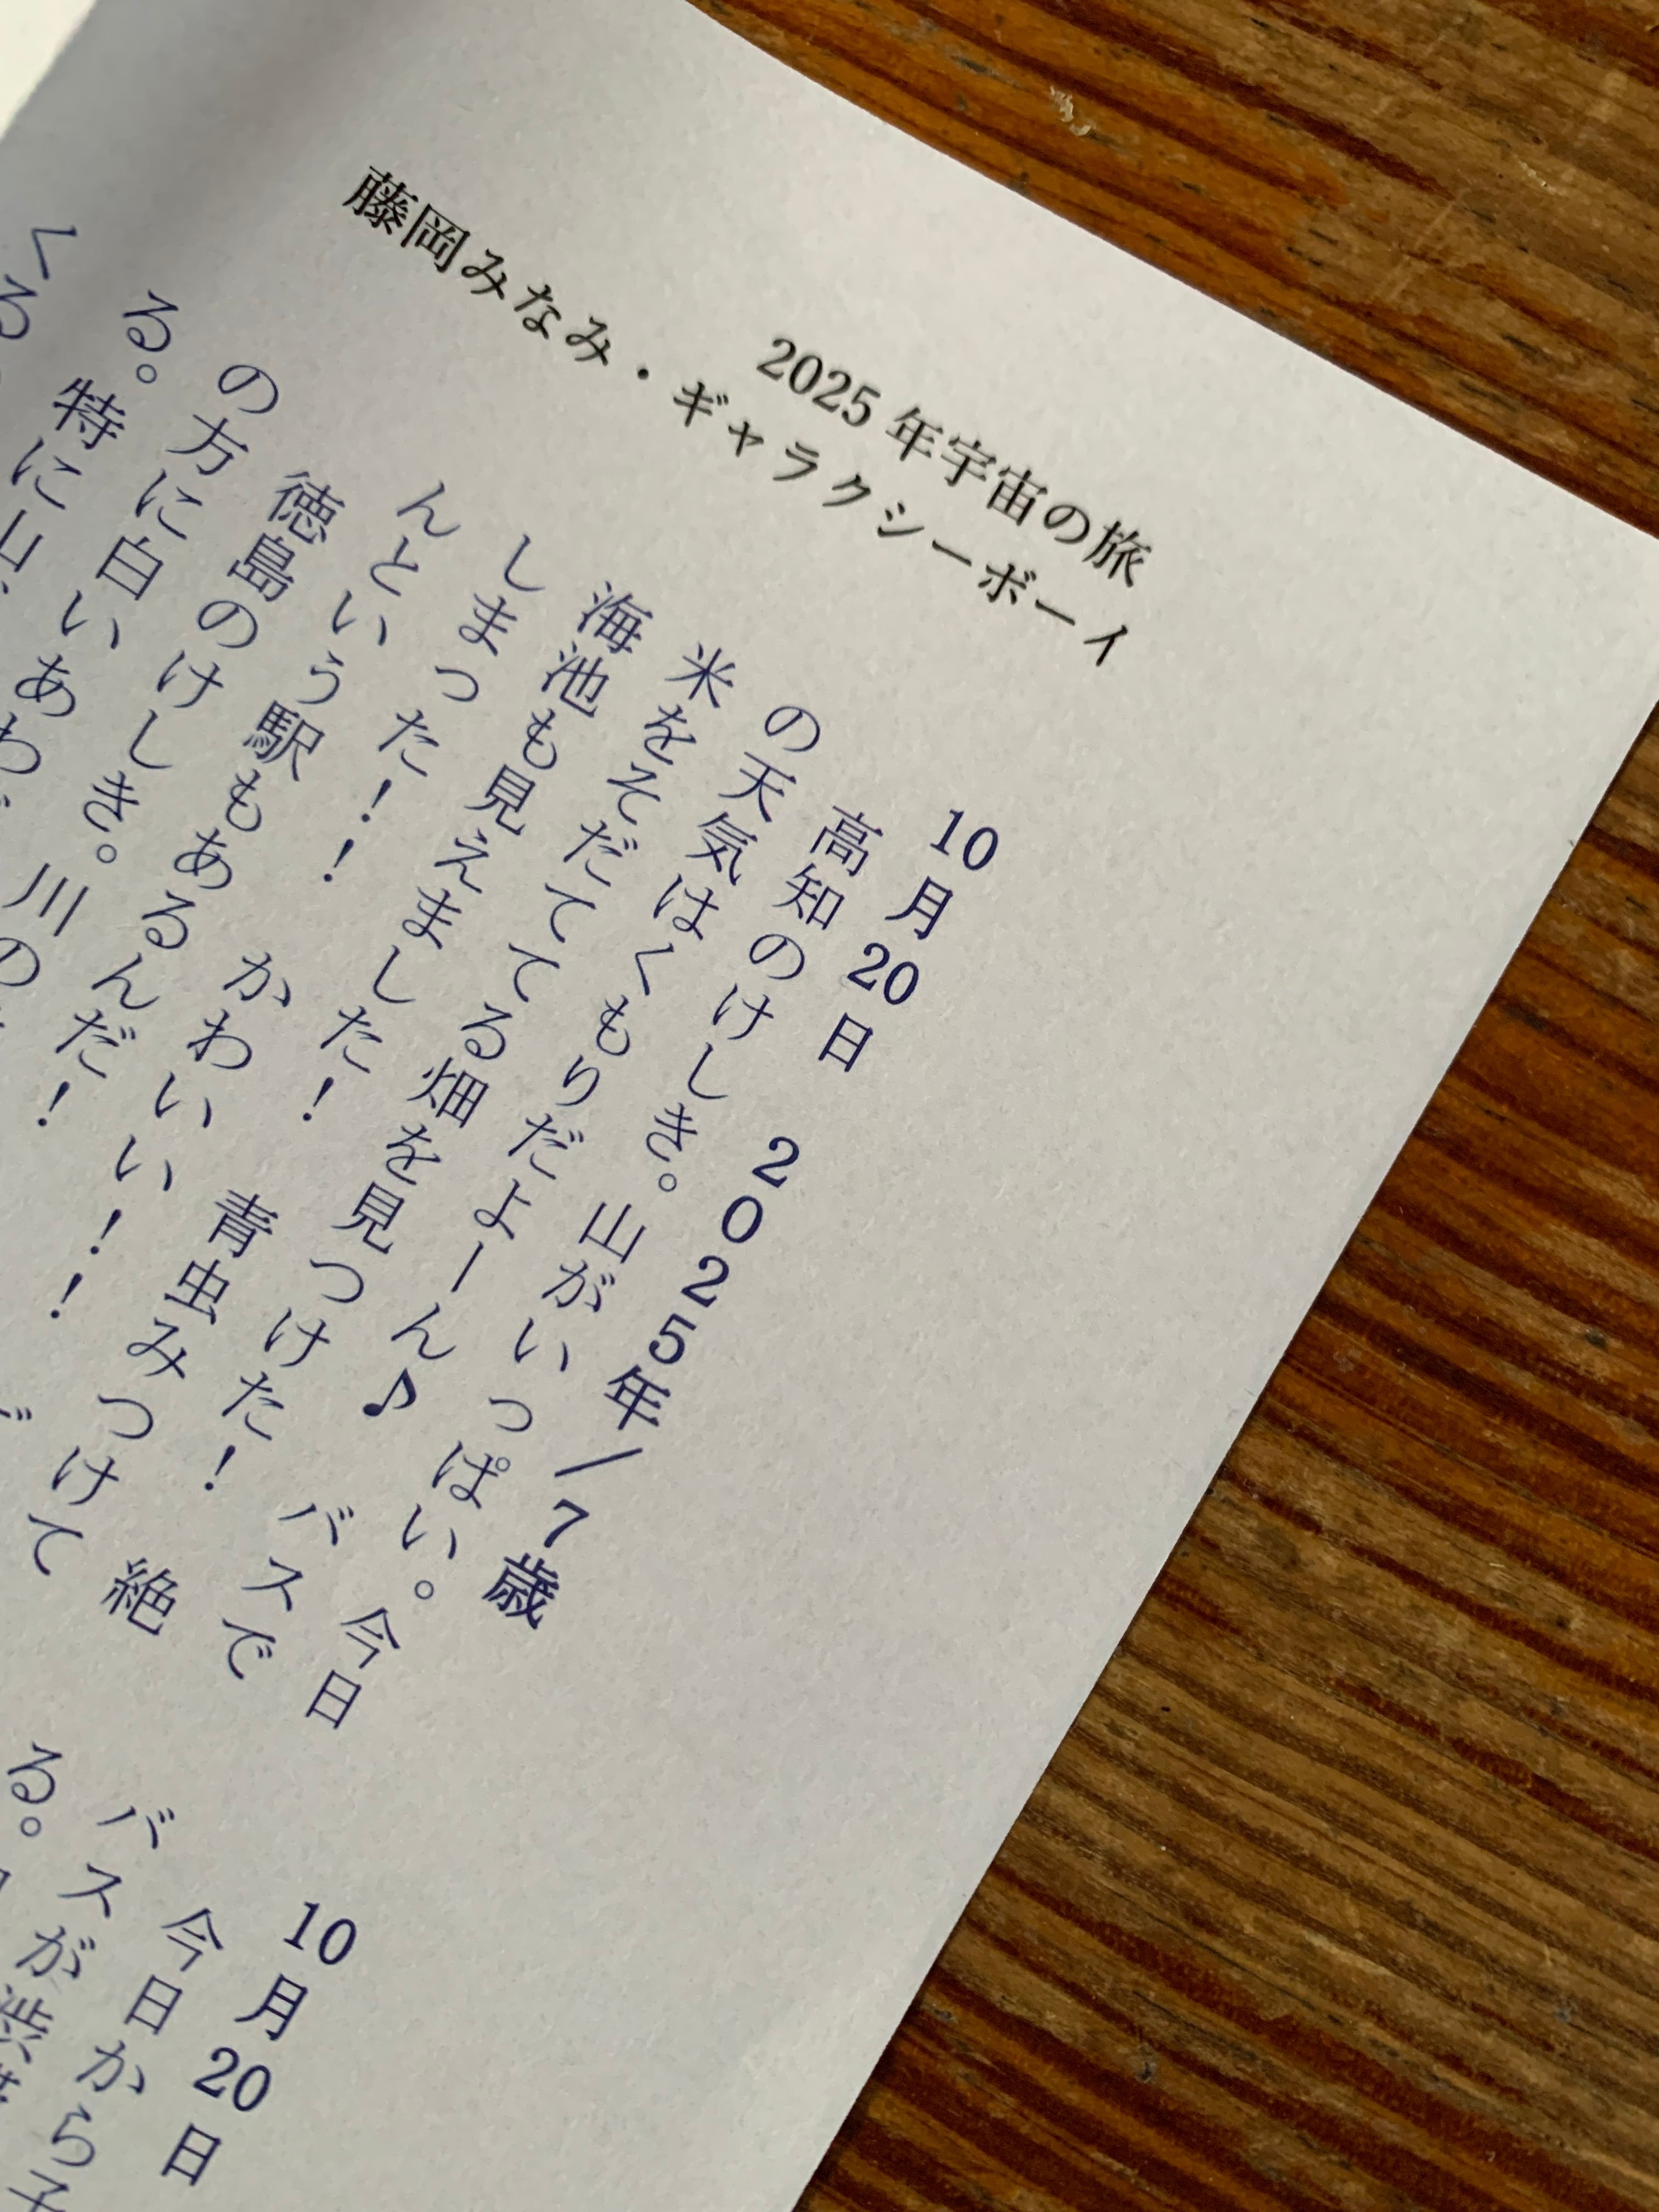 2025 年宇宙の旅
藤岡みなみ・ギャラクシーボーイ
10月20日 2025年/7歳
高知のけしき。山がいっぱい。今日
の天気はくもりだよーん♪ バスで
米をそだててる畑を見つけた! 絶
海池も見えました! 青虫みつけて
しまった!! かわいい!!
んという駅もあるんだ!
徳島のけしき。川の
の方に白いあわ
る。特に山
くる
10月20日
今日から
バスが渋
る。